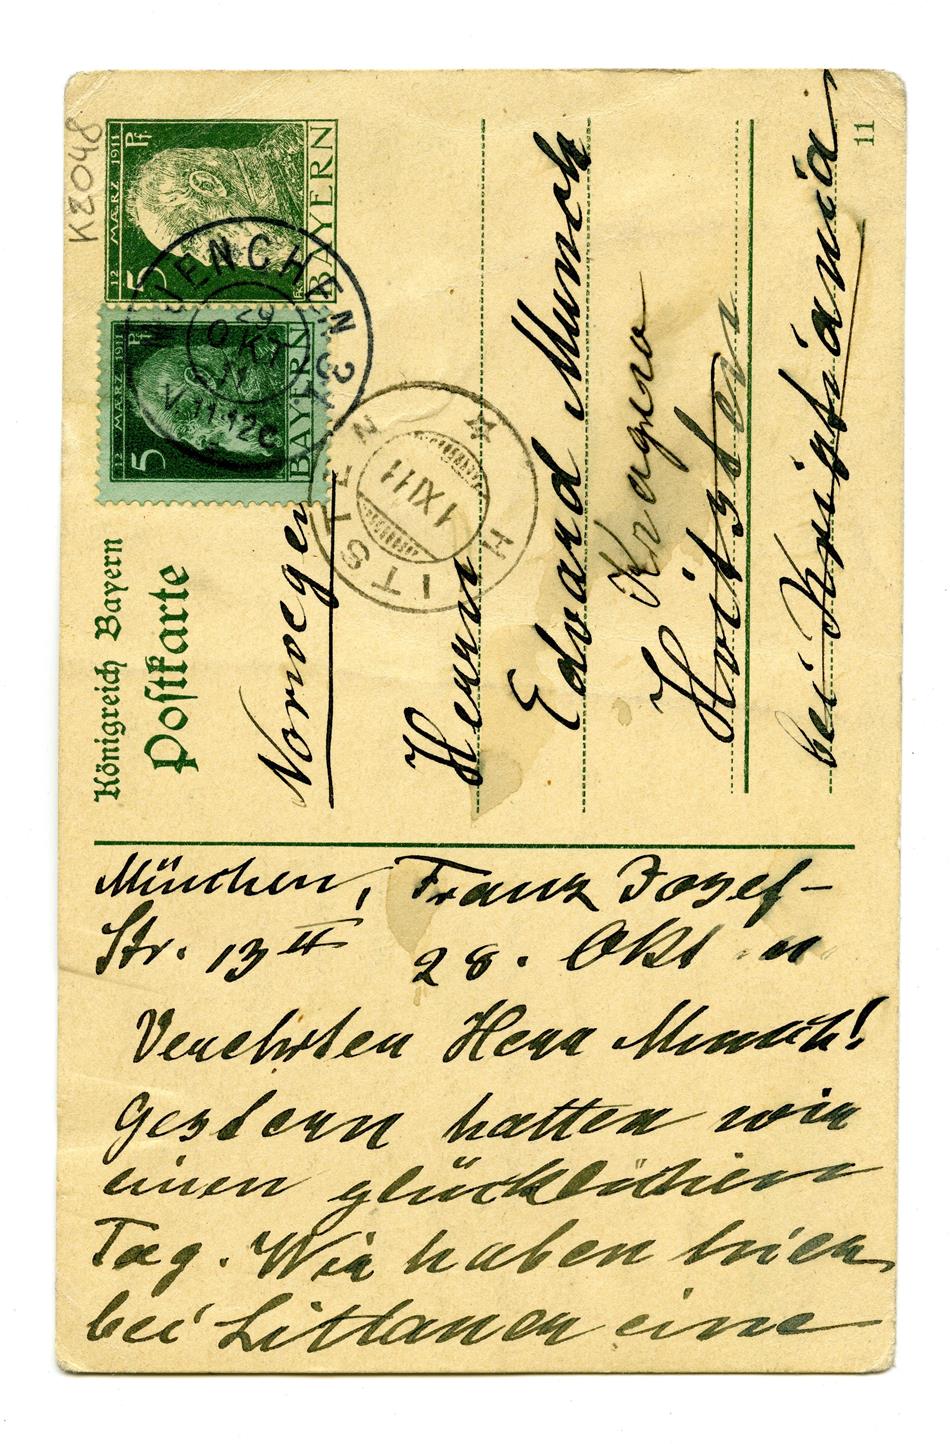 K2048
12 MÆRZ 1911
5 Pf.
BAYERN
12 MÆRZ 1911
5 Pf
BAYERN
MUENCHEN 31
29
OKT
11
V 11-12
HVITSTEN
1 XI 11
Königreich Bayern
Postkarte
Norwegen
Herrn
Edvard Munch
Kragerø
Hvitsten
bei Kristiania
11
München, Franz Josef-
Str. 13 II 28. Okt 11
Verehrter Herr Munch!
Gestern hatten wir
einen glücklichen
Tag. Wir haben hier
bei Littauer eine